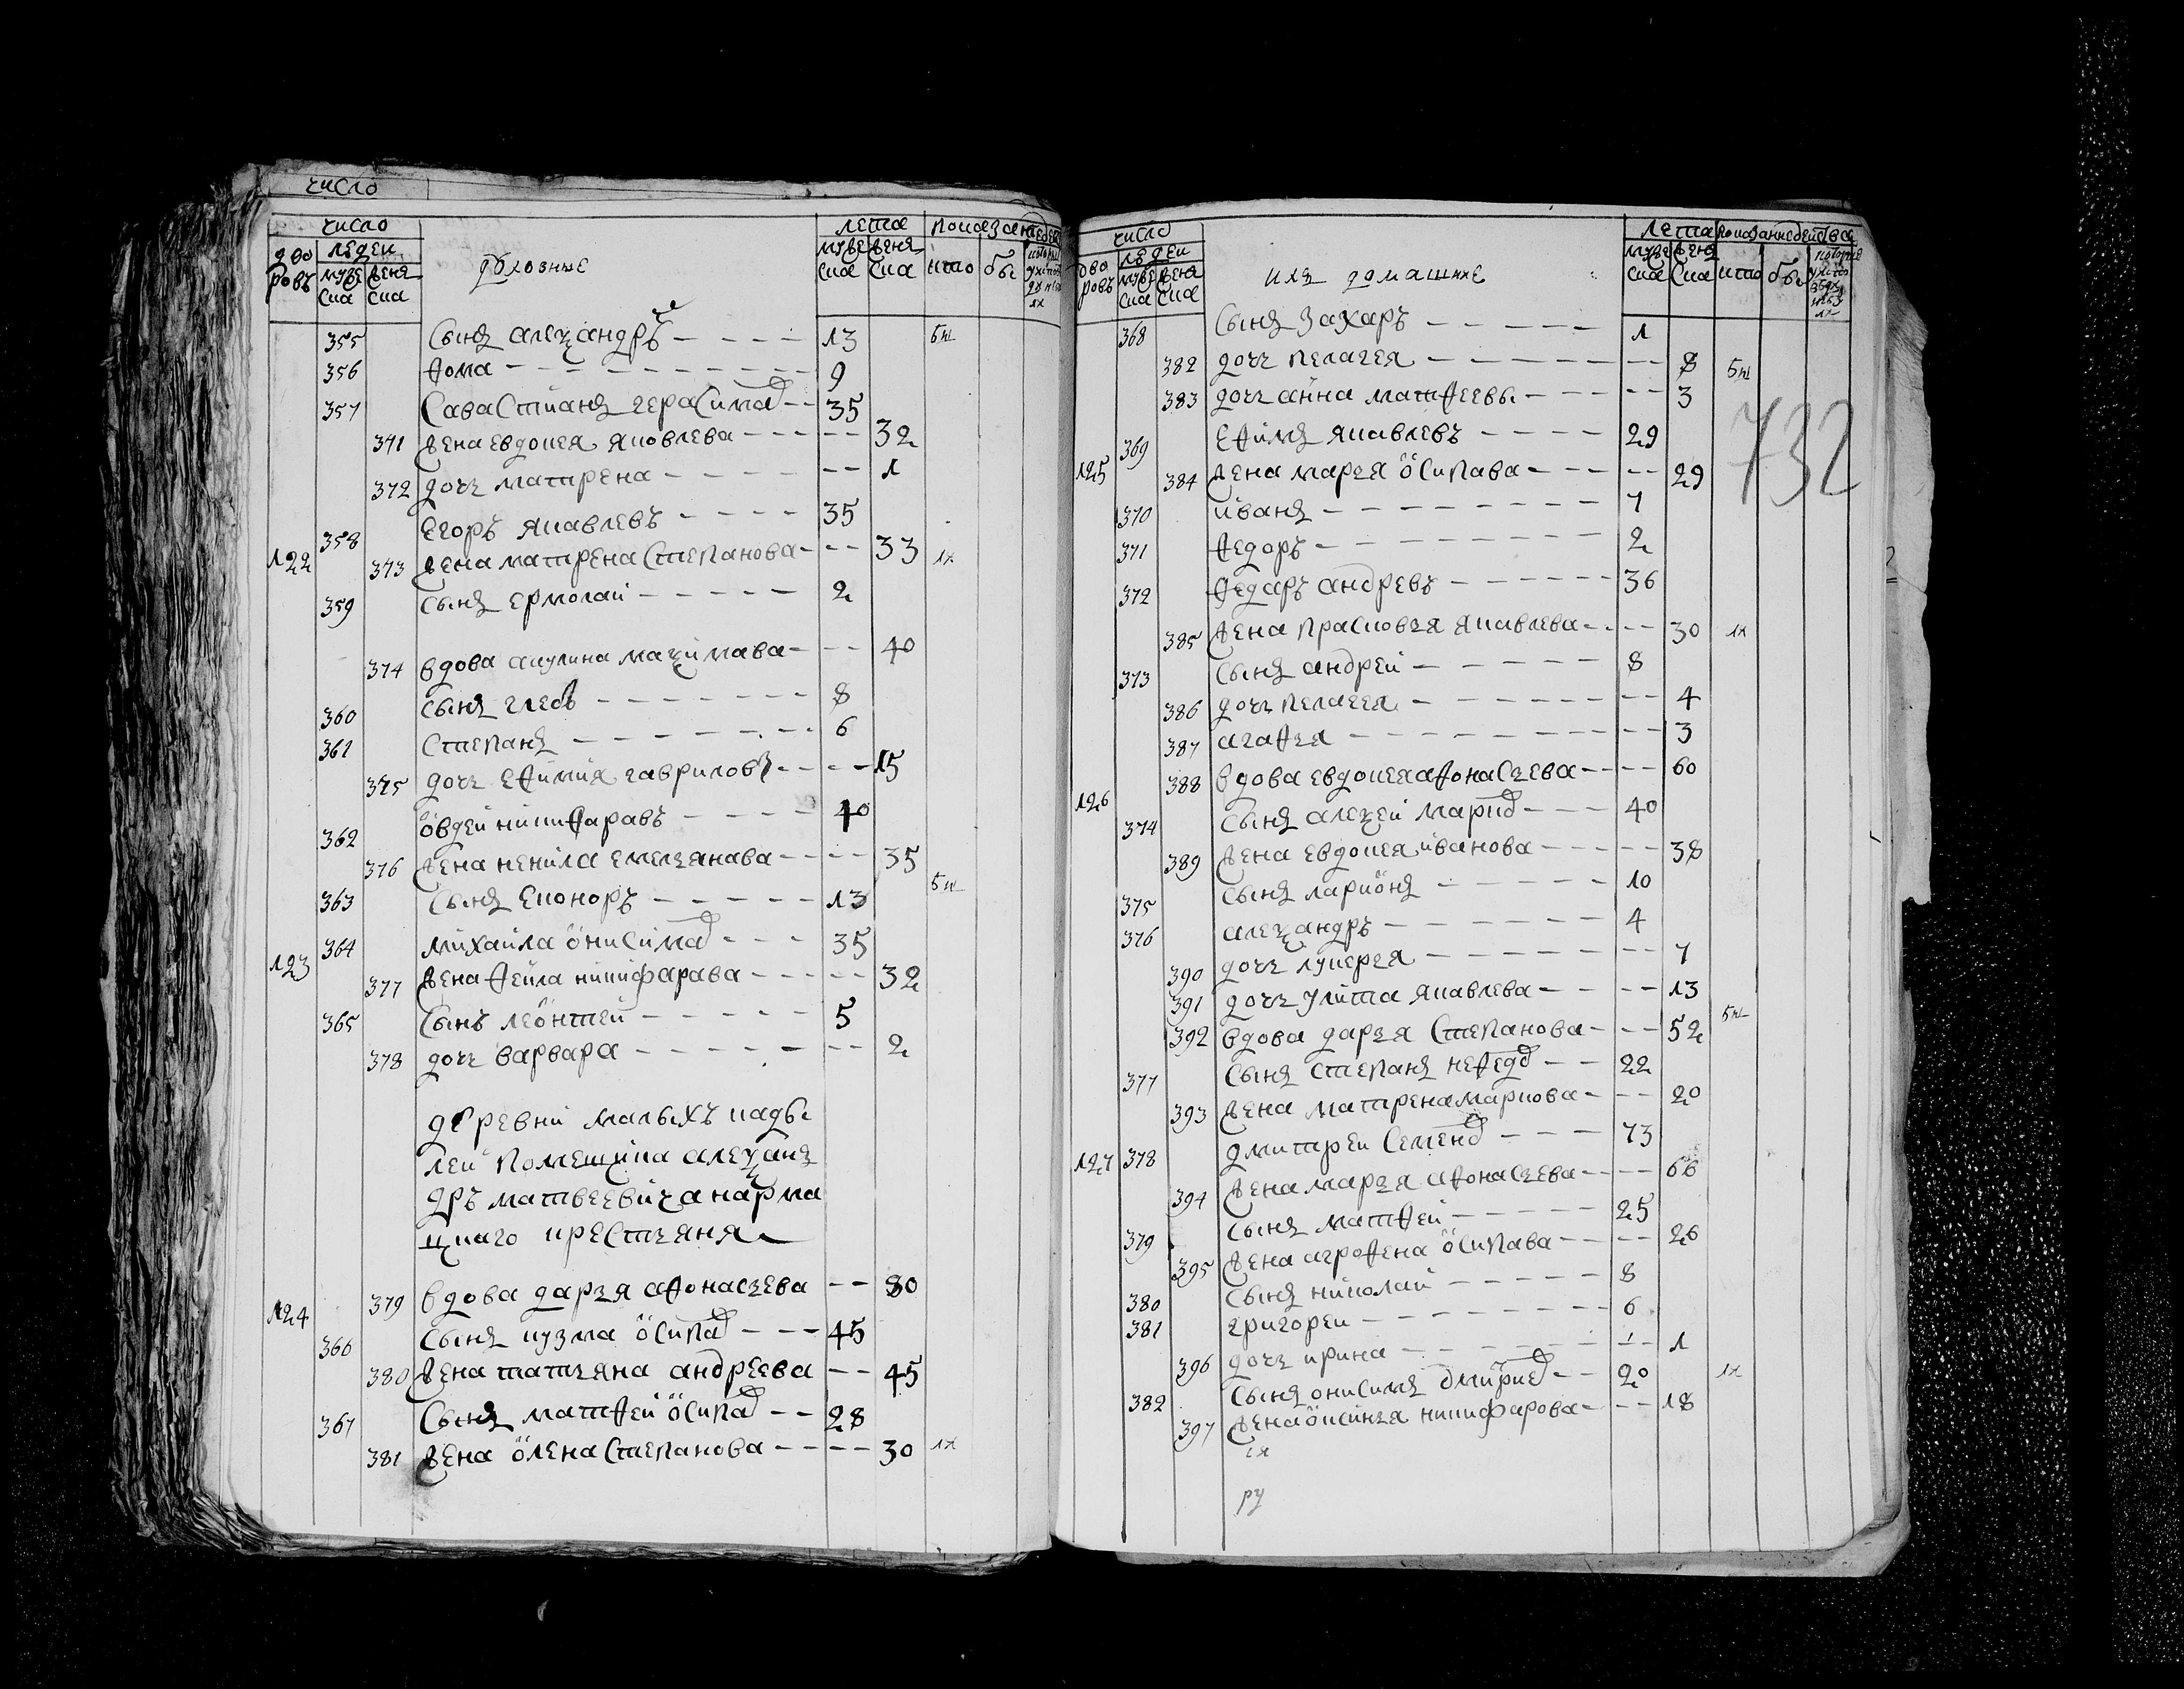 число
число
лета
показание
дво
ровъ
людеи
муже
ска
женя
ска
духовные
муже
ска
женя
ска
кто
обы
355 сынъ алеѯандръ 13
356 Ѳома 9
357 Саваcтианъ герасимов 35
371 жена евдокея яковлева 32
372 дочь матрена 1
358 Егоръ якавлевъ 35
122 373 жена матрена Степанова 33
359 сынъ ермолаи 2
374 вдова акулина маѯимава 40
360 сынъ глебъ 8
361 Степанъ 6
375 дочь еѲимия гаврилов 15
362 овдеи никиѲаравъ 40
376 жена ненила емельянава 35
363 сынъ 13
123 364 михаила онисимов 35
377 жена Ѳекла никифарава 32
365 Сынъ леонтеи 5
378 дочь варвара 2
деревни малыхъ кады
леи помещика алеѯан
дръ матвеевича карма
цкаго крестьяня
124 379 вдова дарья аѲонасьева 80
366 сынъ кузма осипов 45
380 жена татьяна андреева 45
367 Сынъ матѲеи осипов 28
381 жена олена Степанова 30
число
лета показание бытва
дво
ровъ
людеи
муже
ска
женя
ска
ихъ домашние
муже
ска
женя
ска
кто
обы
368 Сынъ Захаръ 1
382 дочь пелагея 8
383 дочь анна матѲеевы 3
369 еѲимъ якавлевъ 29
125 384 жена марья осипава 29
370 иванъ 7
371 Ѳедоръ 2
372 Ѳедаръ андревъ 36
385 жена прасковья якавлева 30
373 Сынъ андреи 8
386 дочь пелагея 4
387 агаѲья 3
388 вдова евдокея аѲонасьева 60
126
374 Сынъ алеѯеи марков 40
389 жена евдокея иванова 38
375 сынъ ларионъ 10
376 алеѯандръ 4
390 дочь лукерья 7
391 дочь улита якавлева 13
392 вдова дарья Степанова 52
377 Сынъ степанъ неѲедов 22
393 жена матрена маркова 20
127 378 дмитреи Семенов 73
394 жена марья аѲонасьева 66
379 сынъ матѲеи 25
395 жена агроѲена осипава 26
380 сынъ николаи 8
381 григореи 6
396 дочь ирина 1
382 Сынъ онисимъ дмитриев 20
397 жена оксинья никифарова 18
732
ру